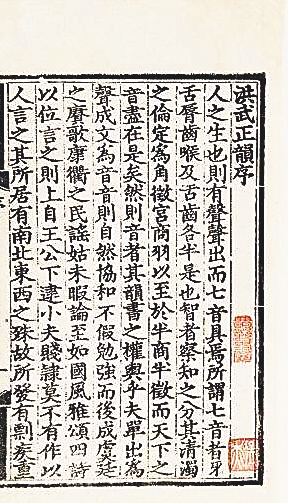 洪武正韻序
人之生也則有聲聲出而七音具焉所謂七音者牙
舌脣齒喉及舌齒各半是也智者察知之分其清濁
之倫定爲角徵宮商羽以至於半商半徵而天下之
音盡在是矣然則音者其韻書之權輿乎夫單出爲
聲成文爲音音則自然協和不假勉強而後成虞廷
之賡歌康衢之民謠姑未暇論至如國風雅頌四詩
以位言之則上自王公下逮小夫賤隸莫不有作以
人言之其所居有南北東西之殊故所發有剽疾重